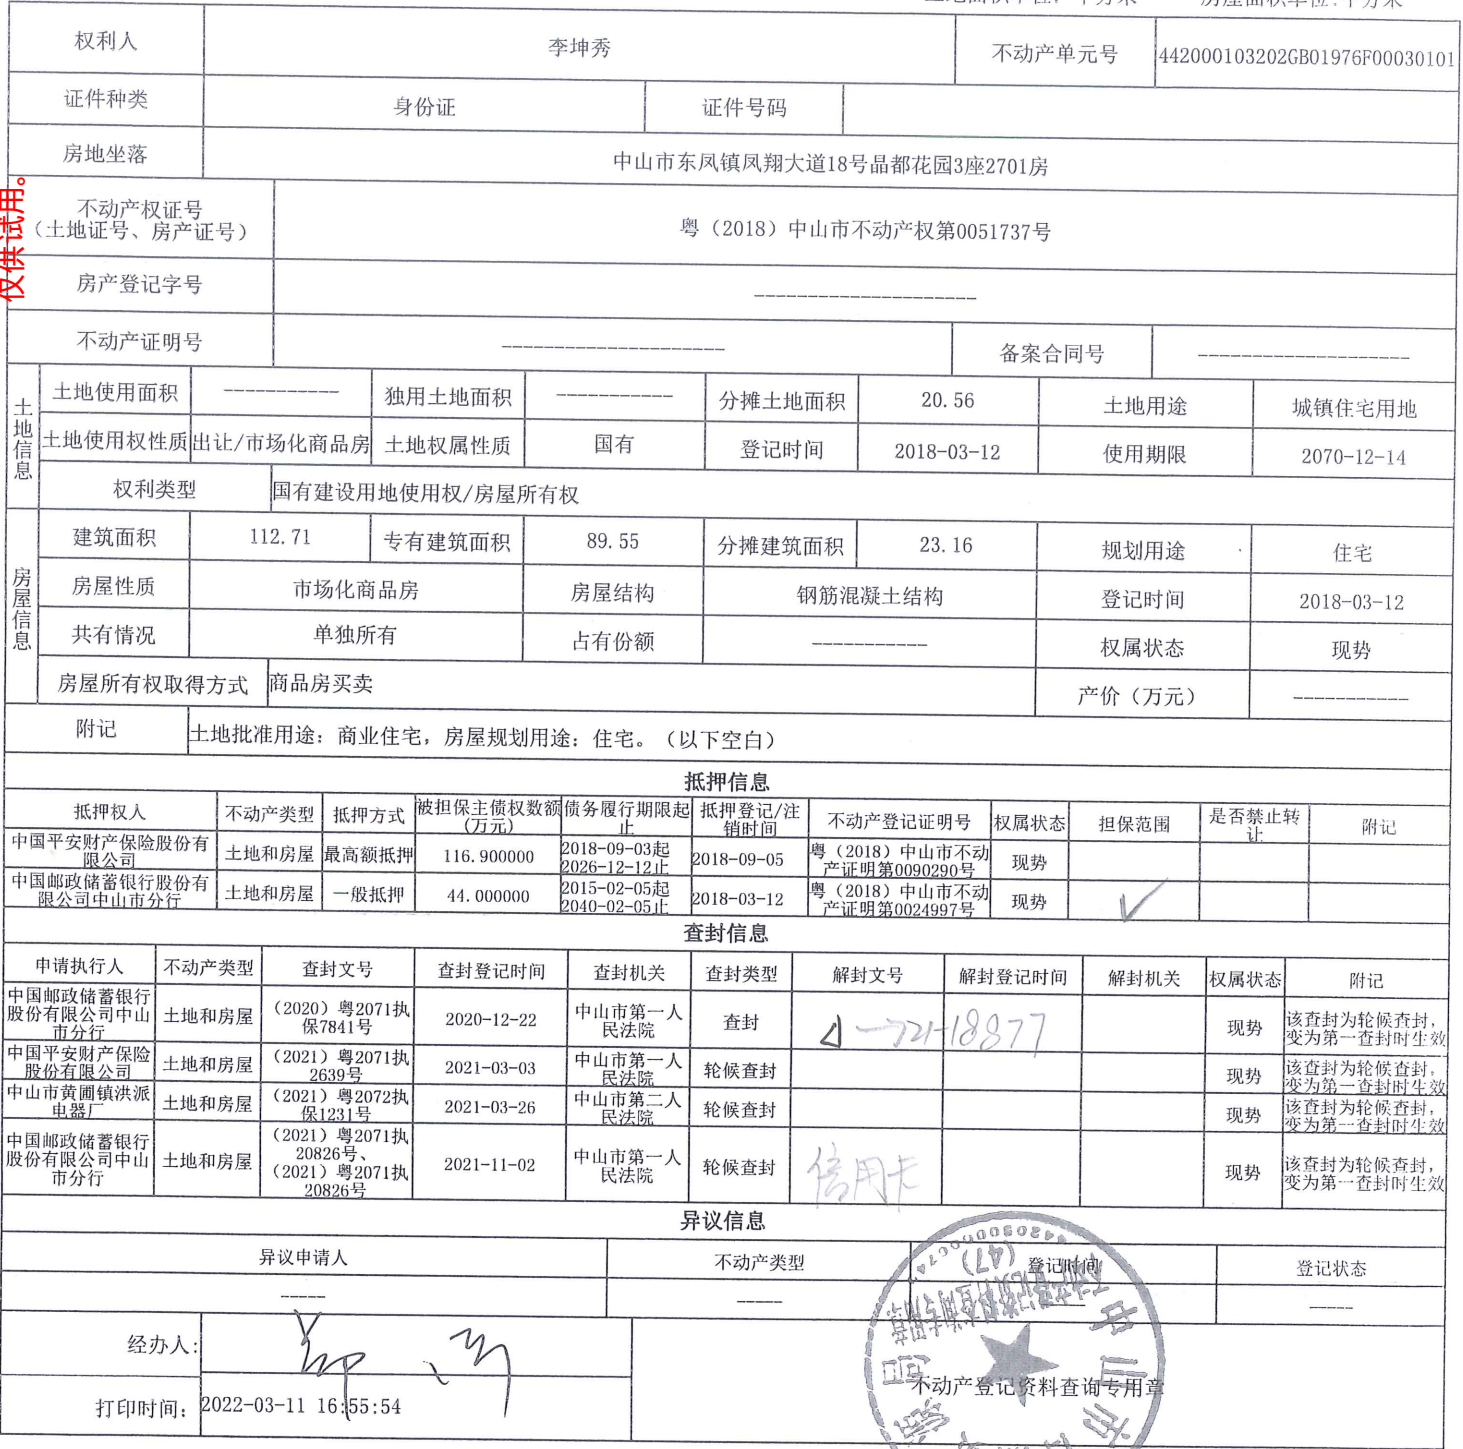 权利人 李坤秀 不动产单元号 442000103202GB01976F00030101
证件种类 身份证 证件号码
房地坐落 中山市东凤镇凤翔大道18号晶都花园3座2701房
仅供试用。
不动产权证号
（土地证号、房产证号） 粤（2018）中山市不动产权第0051737号
房产登记字号 ---------------------
不动产证明号 --------------------- 备案合同号 --------------------
土地信息
土地使用面积 ----------- 独用土地面积 ----------- 分摊土地面积 20.56 土地用途 城镇住宅用地
土地使用权性质 出让/市场化商品房 土地权属性质 国有 登记时间 2018-03-12 使用期限 2070-12-14
权利类型 国有建设用地使用权/房屋所有权
房屋信息
建筑面积 112.71 专有建筑面积 89.55 分摊建筑面积 23.16 规划用途 住宅
房屋性质 市场化商品房 房屋结构 钢筋混凝土结构 登记时间 2018-03-12
共有情况 单独所有 占有份额 ----------- 权属状态 现势
房屋所有权取得方式 商品房买卖 产价（万元） -----------
附记 土地批准用途：商业住宅，房屋规划用途：住宅。（以下空白）
抵押信息
抵押权人 不动产类型 抵押方式 被担保主债权数额(万元) 债务履行期限起止 抵押登记/注销时间 不动产登记证明号 权属状态 担保范围 是否禁止转让 附记
中国平安财产保险股份有限公司 土地和房屋 最高额抵押 116.900000 2018-09-03起2026-12-12止 2018-09-05 粤（2018）中山市不动产证明第0090290号 现势
中国邮政储蓄银行股份有限公司中山市分行 土地和房屋 一般抵押 44.000000 2015-02-05起2040-02-05止 2018-03-12 粤（2018）中山市不动产证明第0024997号 现势
查封信息
申请执行人 不动产类型 查封文号 查封登记时间 查封机关 查封类型 解封文号 解封登记时间 解封机关 权属状态 附记
中国邮政储蓄银行股份有限公司中山市分行 土地和房屋 （2020）粤2071执保7841号 2020-12-22 中山市第一人民法院 查封 现势 该查封为轮候查封，变为第一查封时生效
中国平安财产保险股份有限公司 土地和房屋 （2021）粤2071执2639号 2021-03-03 中山市第一人民法院 轮候查封 现势 该查封为轮候查封，变为第一查封时生效
中山市黄圃镇洪派电器厂 土地和房屋 （2021）粤2072执保1231号 2021-03-26 中山市第二人民法院 轮候查封 现势 该查封为轮候查封，变为第一查封时生效
中国邮政储蓄银行股份有限公司中山市分行 土地和房屋 （2021）粤2071执20826号、（2021）粤2071执20826号 2021-11-02 中山市第一人民法院 轮候查封 信用卡 现势 该查封为轮候查封，变为第一查封时生效
异议信息
异议申请人 不动产类型 登记时间 登记状态
----- ----- ----- -----
经办人:
打印时间: 2022-03-11 16:55:54
不动产登记资料查询专用章
(47)